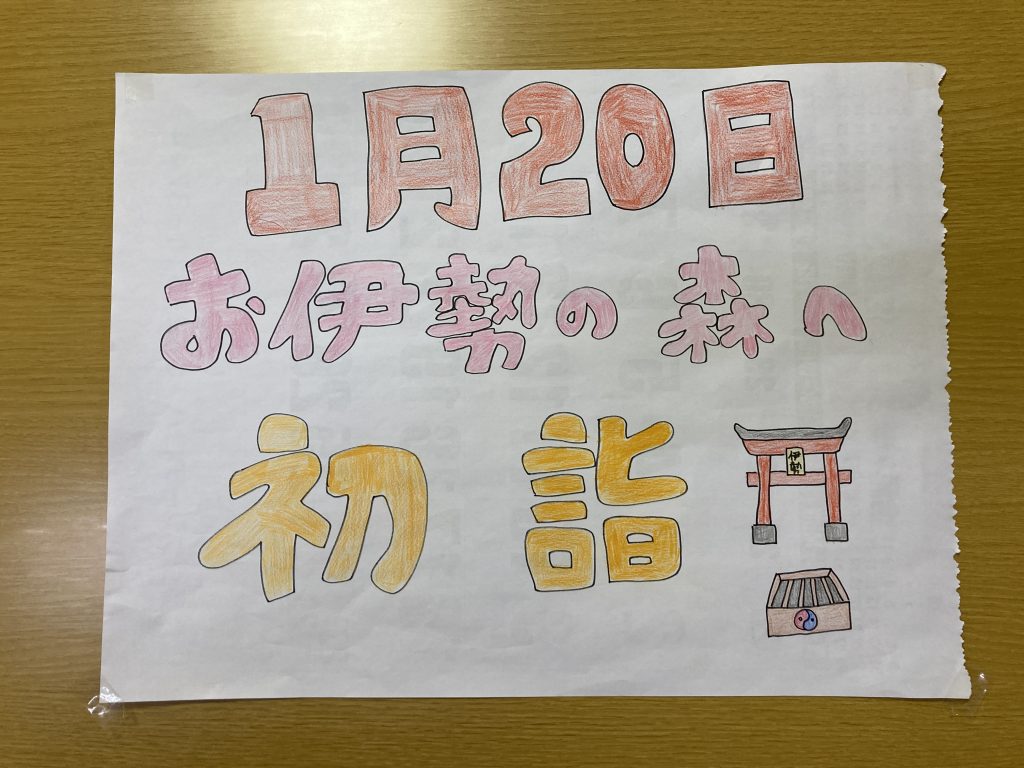 1月20日
お伊勢の森へ
初詣
伊勢